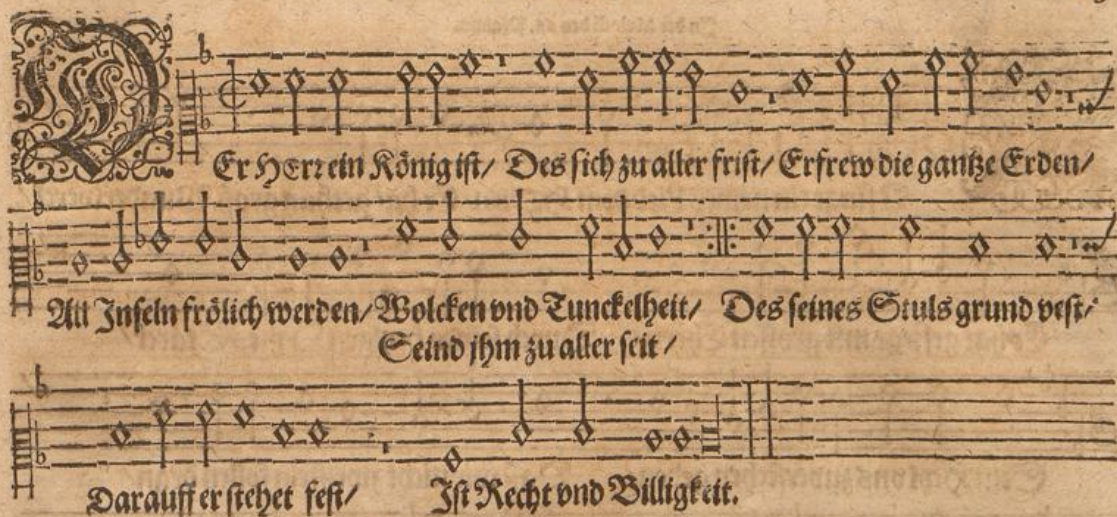 DEr HErr ein König ist/ Des sich zu aller frist/ Erfrew die gantze Erden/
All Inseln frölich werden/ Wolcken vnd Tunckelheit/ Des seines Stuls grund vest/
Seind jhm zu aller seit/
Darauff er stehet fest/ Ist Recht vnd Billigkeit.